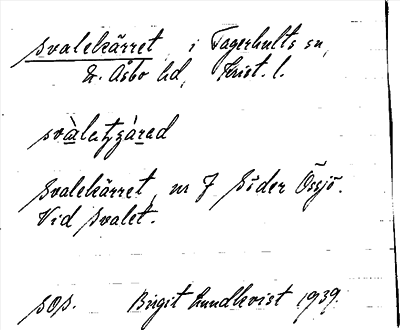 Svalekärret i Fagerhults sn,
N. Åsbo hd, Krist. l.
Svalekärret, nr 7 Söder Össjö.
Vid Svalet.
sop. Birgit Lundkvist 1939.